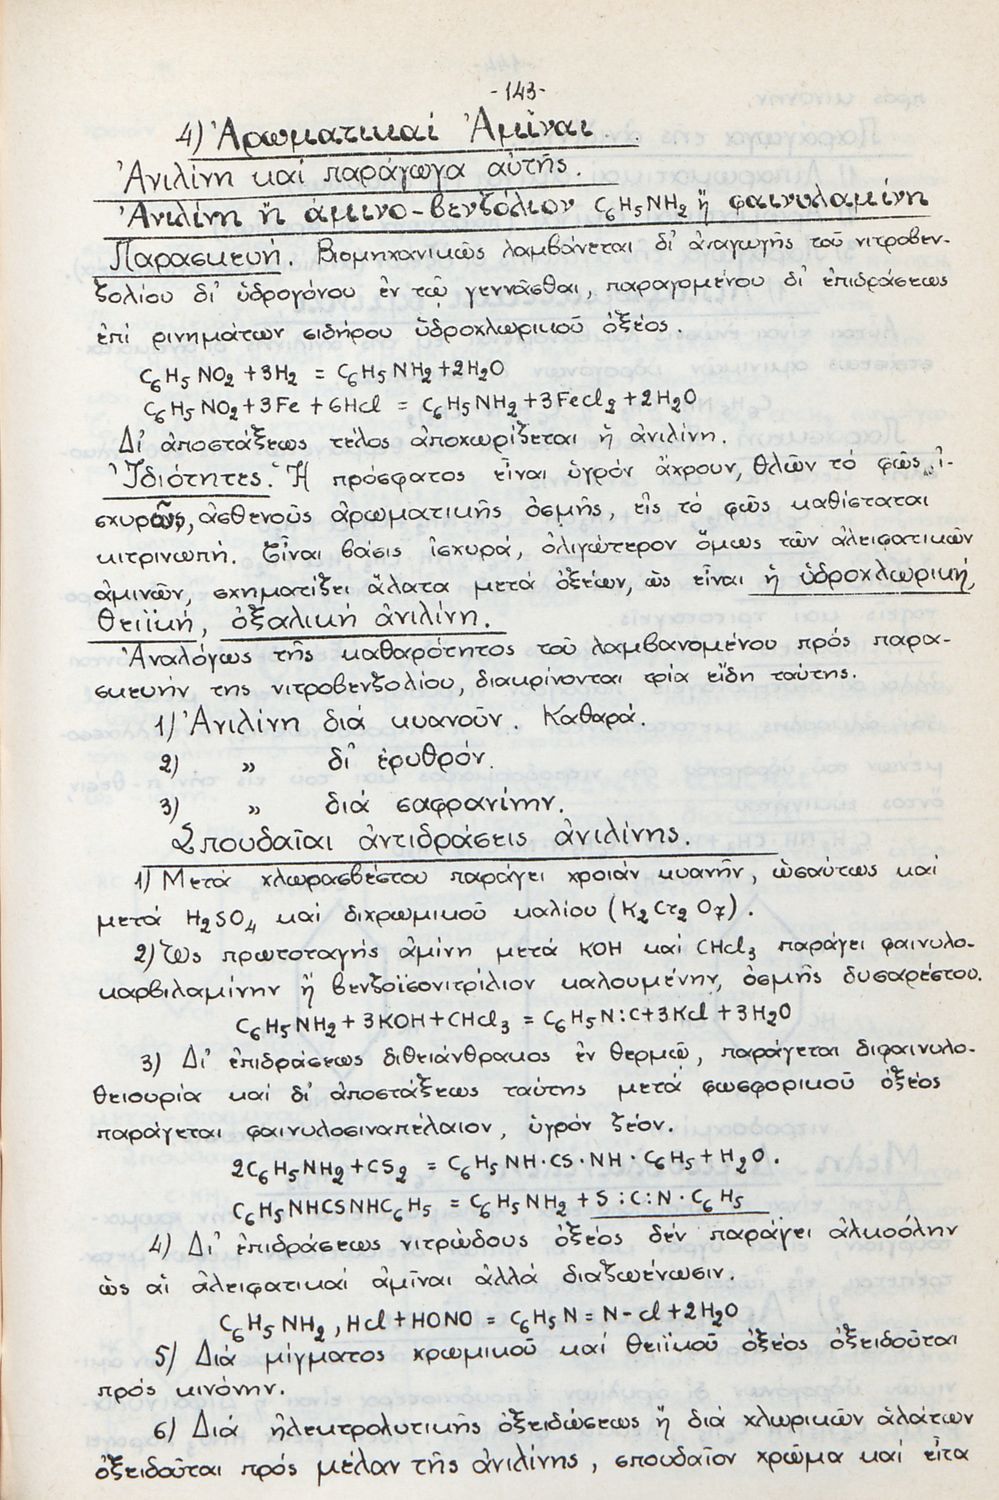 -143-
4) Ἀρωματικαί Ἀμῖναι.
Ἀνιλίνη καί παράγωγα αὐτῆς.
Ἀνιλίνη ἤ ἀμινο-βενζόλιον C6H5NH2 ἤ φαινυλαμίνη
Παρασκευή. Βιομηχανικῶς λαμβάνεται δι' ἀναγωγῆς τοῦ νιτροβεν-
ζολίου δι' ὑδρογόνου ἐν τῷ γεννᾶσθαι, παραγομένου δι' ἐπιδράσεως
ἐπί ρινημάτων σιδήρου ὑδροχλωρικοῦ ὀξέος.
C6H5NO2 + 3H2 = C6H5NH2 + 2H2O
C6H5NO2 + 3Fe + 6HCl = C6H5NH2 + 3FeCl2 + 2H2O
Δι' ἀποστάξεως τέλος ἀποχωρίζεται ἡ ἀνιλίνη.
Ἰδιότητες: Ἡ πρόσφατος εἶναι ὑγρόν ἄχρουν, θλῶν τό φῶς ἰ-
σχυρῶς, ἀσθενοῦς ἀρωματικῆς ὀσμῆς, εἰς τό φῶς καθίσταται
κιτρινωπή. Εἶναι βάσις ἰσχυρά, ὀλιγώτερον ὅμως τῶν ἀλειφατικῶν
ἀμινῶν, σχηματίζει ἅλατα μετά ὀξέων, ὡς εἶναι ἡ ὑδροχλωρική,
θειϊκή, ὀξαλική ἀνιλίνη.
Ἀναλόγως τῆς καθαρότητος τοῦ λαμβανομένου πρός παρα-
σκευήν της νιτροβενζολίου, διακρίνονται τρία εἴδη ταύτης.
1) Ἀνιλίνη διά κυανοῦν. Καθαρά.
2) " δι' ἐρυθρόν.
3) " διά σαφρανίνην.
Σπουδαῖαι ἀντιδράσεις ἀνιλίνης.
1) Μετά χλωρασβέστου παράγει χροιάν κυανῆν, ὡσαύτως καί
μετά H2SO4 καί διχρωμικοῦ καλίου (K2Cr2O7).
2) Ὡς πρωτοταγής ἀμίνη μετά KOH καί CHCl3 παράγει φαινυλο-
καρβιλαμίνην ἤ βενζοϊσονιτρίλιον καλουμένην, ὀσμῆς δυσαρέστου.
C6H5NH2 + 3KOH + CHCl3 = C6H5N:C + 3KCl + 3H2O
3) Δι' ἐπιδράσεως διθειάνθρακος ἐν θερμῷ, παράγεται διφαινυλο-
θειουρία καί δι' ἀποστάξεως ταύτης μετά φωσφορικοῦ ὀξέος
παράγεται φαινυλοσιναπέλαιον, ὑγρόν ζέον.
2C6H5NH2 + CS2 = C6H5NH·CS·NH·C6H5 + H2O.
C6H5NHCSNHC6H5 = C6H5NH2 + S:C:N·C6H5
4) Δι' ἐπιδράσεως νιτρώδους ὀξέος δέν παράγει ἀλκοόλην
ὡς αἱ ἀλειφατικαί ἀμῖναι ἀλλά διαζωένωσιν.
C6H5NH2, HCl + HONO = C6H5N = N-Cl + 2H2O
5) Διά μίγματος χρωμικοῦ καί θειϊκοῦ ὀξέος ὀξειδοῦται
πρός κινόνην.
6) Διά ἠλεκτρολυτικῆς ὀξειδώσεως ἤ διά χλωρικῶν ἁλάτων
ὀξειδοῦται πρός μέλαν τῆς ἀνιλίνης, σπουδαῖον χρῶμα καί εἶτα